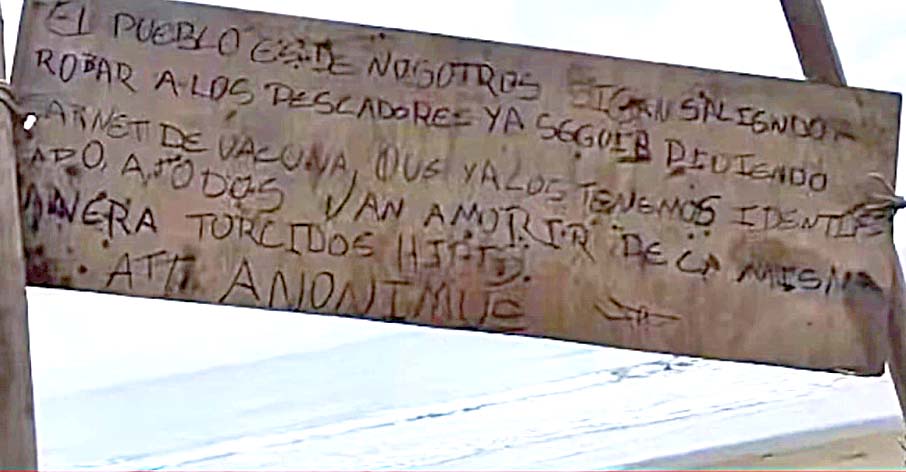 EL PUEBLO ES DE NOSOTROS SIGAN SALIENDO A
ROBAR A LOS PESCADORES YA SEGUIR PIDIENDO
CARNET DE VACUNA, QUE YA LOS TENEMOS IDENTIFI
CADO, A TODOS VAN AMORIR DE LA MISMA
MANERA TORCIDOS
ATT. ANONIMUE